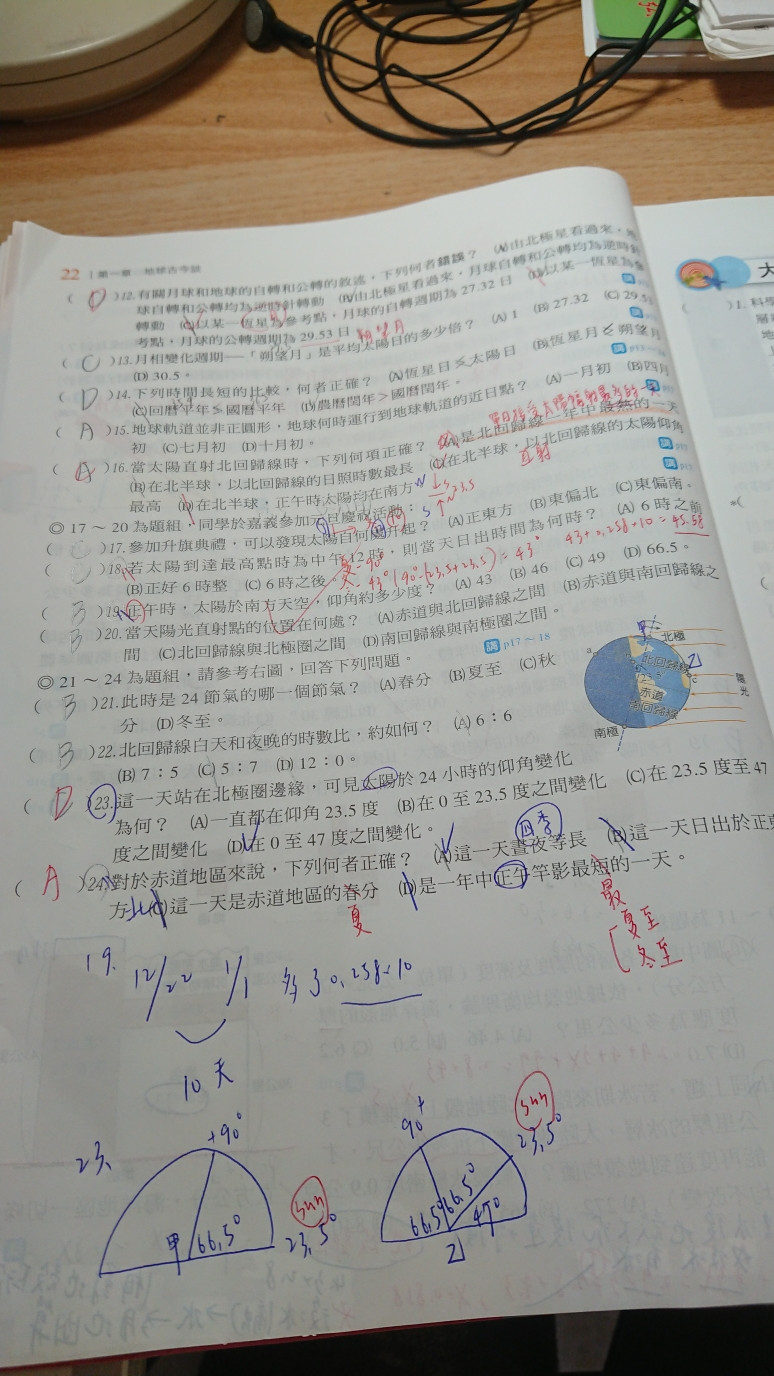 22 第一章 地球古今談
( D )12.有關月球和地球的自轉和公轉的敘述,下列何者錯誤? (A)由北極星看過來,地
球自轉和公轉均為逆時針轉動 (B)由北極星看過來,月球自轉和公轉均為逆時針
轉動 (C)以某一恆星為參考點,月球的自轉週期為 27.32 日 (D)以某一恆星為參
考點,月球的公轉週期為 29.53 日 朔望月
( C )13.月相變化週期——「朔望月」是平均太陽日的多少倍? (A) 1 (B) 27.32 (C) 29.5
(D) 30.5。
( D )14.下列時間長短的比較,何者正確? (A)恆星日≦太陽日 (B)恆星月≦朔望月
(C)回曆平年≦國曆平年 (D)農曆閏年>國曆閏年。
( A )15.地球軌道並非正圓形,地球何時運行到地球軌道的近日點? (A)一月初 (B)四月
初 (C)七月初 (D)十月初。
( A )16.當太陽直射北回歸線時,下列何項正確? (A)是北回歸線一年中最熱的一天
(B)在北半球,以北回歸線的日照時數最長 (C)在北半球,以北回歸線的太陽仰角
最高 (D)在北半球,正午時太陽均在南方 直射
◎ 17 ~ 20 為題組:同學於嘉義參加元旦慶祝活動:
( C )17.參加升旗典禮,可以發現太陽自何處升起? (A)正東方 (B)東偏北 (C)東偏南。
( )18.若太陽到達最高點時為中午 12 時,則當天日出時間為何時? (A) 6 時之前
(B)正好 6 時整 (C) 6 時之後。
43+0.258×10=45.58
( B )19.正午時,太陽於南方天空,仰角約多少度? (A) 43 (B) 46 (C) 49 (D) 66.5。
( B )20.當天陽光直射點的位置在何處? (A)赤道與北回歸線之間 (B)赤道與南回歸線之
間 (C)北回歸線與北極圈之間 (D)南回歸線與南極圈之間。
◎ 21 ~ 24 為題組,請參考右圖,回答下列問題。 講 p17 ~ 18
( B )21.此時是 24 節氣的哪一個節氣? (A)春分 (B)夏至 (C)秋
分 (D)冬至。
( B )22.北回歸線白天和夜晚的時數比,約如何? (A) 6:6
(B) 7:5 (C) 5:7 (D) 12:0。
甲 北極
北回歸線 乙
23.5
赤道
南回歸線
陽光
南極
( D )23.這一天站在北極圈邊緣,可見太陽於 24 小時的仰角變化
為何? (A)一直都在仰角 23.5 度 (B)在 0 至 23.5 度之間變化 (C)在 23.5 度至 47
度之間變化 (D)在 0 至 47 度之間變化。
四季
( A )24.對於赤道地區來說,下列何者正確? (A)這一天晝夜等長 (B)這一天日出於正東
方 北 (C)這一天是赤道地區的春分 (D)是一年中正午竿影最短的一天。
夏
最
夏至
冬至
19. 12/22 1/1 多了 0.258×10
10 天
23.
+90°
甲 66.5°
sun
23.5°
90°
sun
23.5°
66.5° 66.5° 47°
乙
大